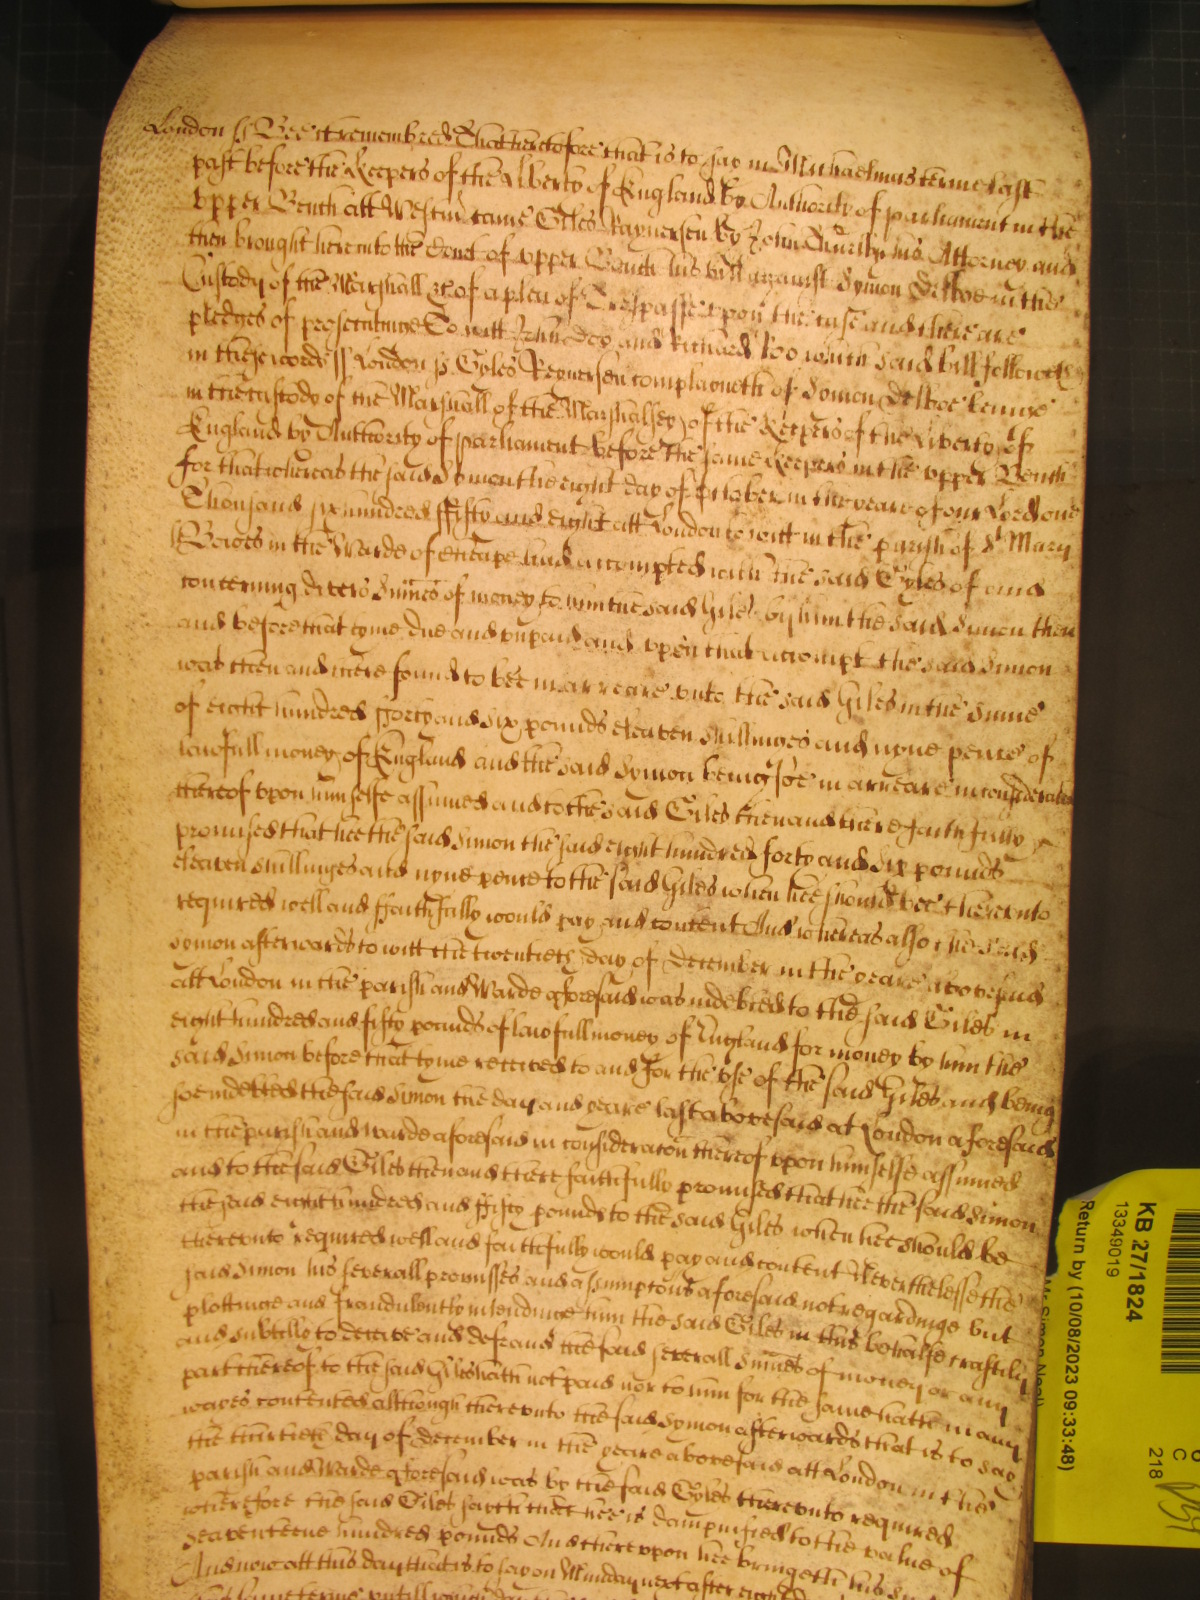 London ss Bee it remembred That heretofore that is to say in Michaelmas terme last
past before the Keepers of the Liberty of England by Authority of parliament in the
upper Bench att Westmr came Giles Raynersen by John his Attorney and
then brought here into the Court of upper Bench his bill against Symon Delboe in the
Custody of the Marshall &c of a plea of Trespasse upon the case and there are
pledges of prosecutinge To witt John Doo and Richard Roo which said bill followeth
in these words ss London ss Gyles Reynersen complayneth of Symon Delboe beinge
in the custody of the Marshall of the Marshalsey of the Keepers of the Liberty of
England by Authority of parliament before the same Keepers in the upper Bench
for that whereas the said Symon the eight day of October in the yeare of our Lord one
Thousand six hundred ffifty and eight att London to witt in the parish of St Mary
Bowes in the Warde of Cheape had accompted with the said Gyles of and
concerning divers Summes of money to him the said Giles by him the said Simon then
and before that tyme due and unpaid and upon that accompt the said Simon
was then and there found to bee in arreare unto the said Giles in the Summe
of eight hundred fforty and six pounds eleaven shillinges and nyne pence of
lawfull money of England and the said Symon being soe in arreare in consideration
thereof upon himselfe assumed and to the said Giles then and there faithfully
promised that hee the said Simon the said eight hundred forty and six pounds
eleaven shillinges and nyne pence to the said Giles when hee should bee thereunto
required well and ffaithfully would pay and content And whereas also the said
Symon afterwards to witt the twentieth day of December in the yeare abovesaid
att London in the parish and Warde aforesaid was indebted to the said Giles in
eight hundred and fifty pounds of lawfull money of England for money by him the
said Simon before that tyme received to and for the use of the said Giles and being
soe indebted the said Simon the day and yeare last abovesaid at London aforesaid
in the parish and warde aforesaid in consideraton thereof upon himselfe assumed
and to the said Giles then and there faithfully promised that hee the said Simon
the said eight hundred and ffifty pounds to the said Giles when hee should be
thereunto required well and faithfully would pay and content Neverthelesse the
said Simon his severall promisses and assumptons aforesaid not regardinge but
plottinge and fraudulently intendinge him the said Giles in this behalfe craftily
and subtilly to deceive and defraud the said severall Summes of money or any
part thereof to the said Giles hath not paid nor to him for the same hath in any
wayes contented although thereunto the said Symon afterwards that is to say
the thirtieth day of December in the yeare abovesaid att London in the
parish and Warde aforesaid was by the said Gyles thereunto required
wherefore the said Giles saith that hee is dampnified to the value of
Seaventeene hundred pounds And thereupon hee bringeth his
And now att this day that is to say on Munday next after eight
KB 27/1824
13349019
Return by (10/08/2023 09:33:48)
C
218